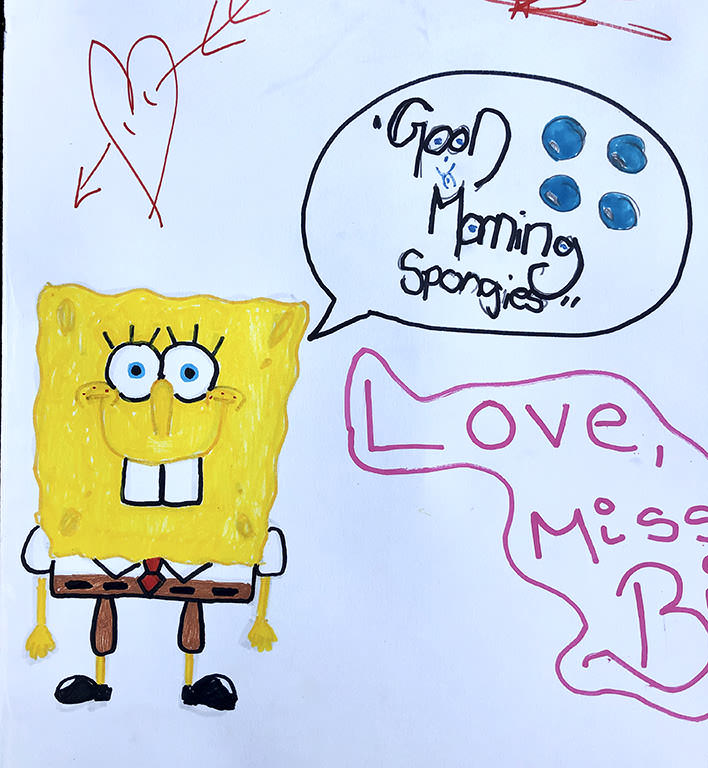 "Good
Morning
Spongies"
Love,
Miss